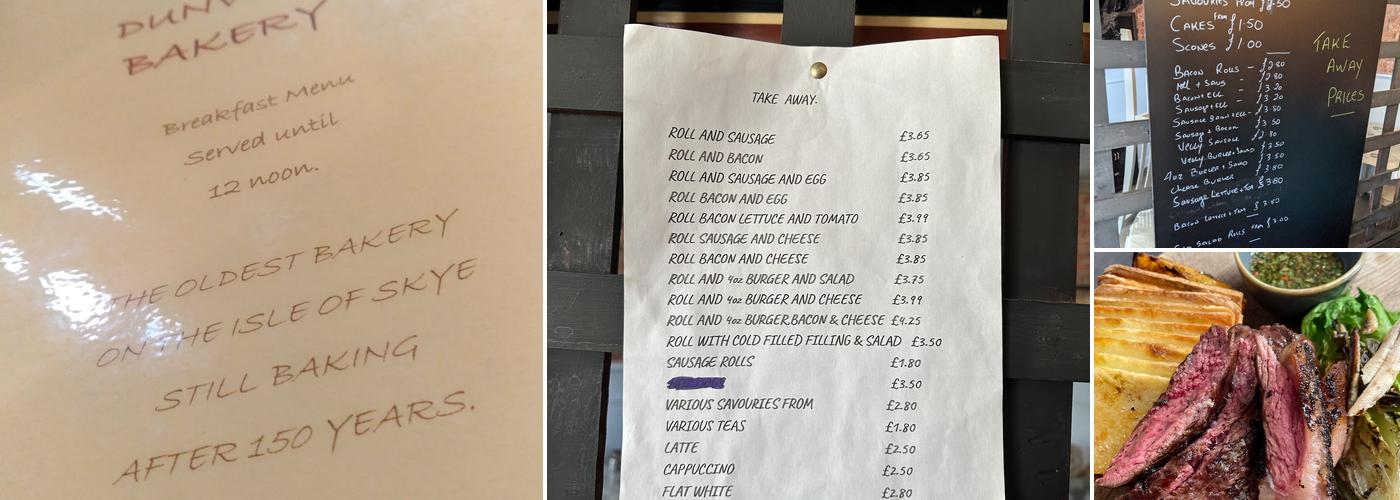 BAKERY
Breakfast Menu
Served until
12 noon.
THE OLDEST BAKERY
ON THE ISLE OF SKYE
STILL BAKING
AFTER 150 YEARS.
TAKE AWAY.
ROLL AND SAUSAGE £3.65
ROLL AND BACON £3.65
ROLL AND SAUSAGE AND EGG £3.85
ROLL BACON AND EGG £3.85
ROLL BACON LETTUCE AND TOMATO £3.99
ROLL SAUSAGE AND CHEESE £3.85
ROLL BACON AND CHEESE £3.85
ROLL AND 4oz BURGER AND SALAD £3.75
ROLL AND 4oz BURGER AND CHEESE £3.99
ROLL AND 4oz BURGER,BACON & CHEESE £4.25
ROLL WITH COLD FILLED FILLING & SALAD £3.50
SAUSAGE ROLLS £1.80
£3.50
VARIOUS SAVOURIES FROM £2.80
VARIOUS TEAS £1.80
LATTE £2.50
CAPPUCCINO £2.50
FLAT WHITE £2.80
SAVOURIES FROM
CAKES from £1.50
SCONES £1.00
TAKE
AWAY
PRICES
Bacon Rolls - £2.80
Roll + Saus - £2.80
Bacon + Egg - £3.20
Sausage + Egg - £3.20
Sausage Bacon + Egg - £3.80
Sausage + Bacon £3.50
Veggy Sausage £2.80
Veggy Burger + Salad £3.50
4oz Burger + Salad £3.50
Cheese Burger £3.80
Sausage Lettuce + Tom £3.80
Bacon Lettuce + Tom £3.80
Salad Rolls from £3.00